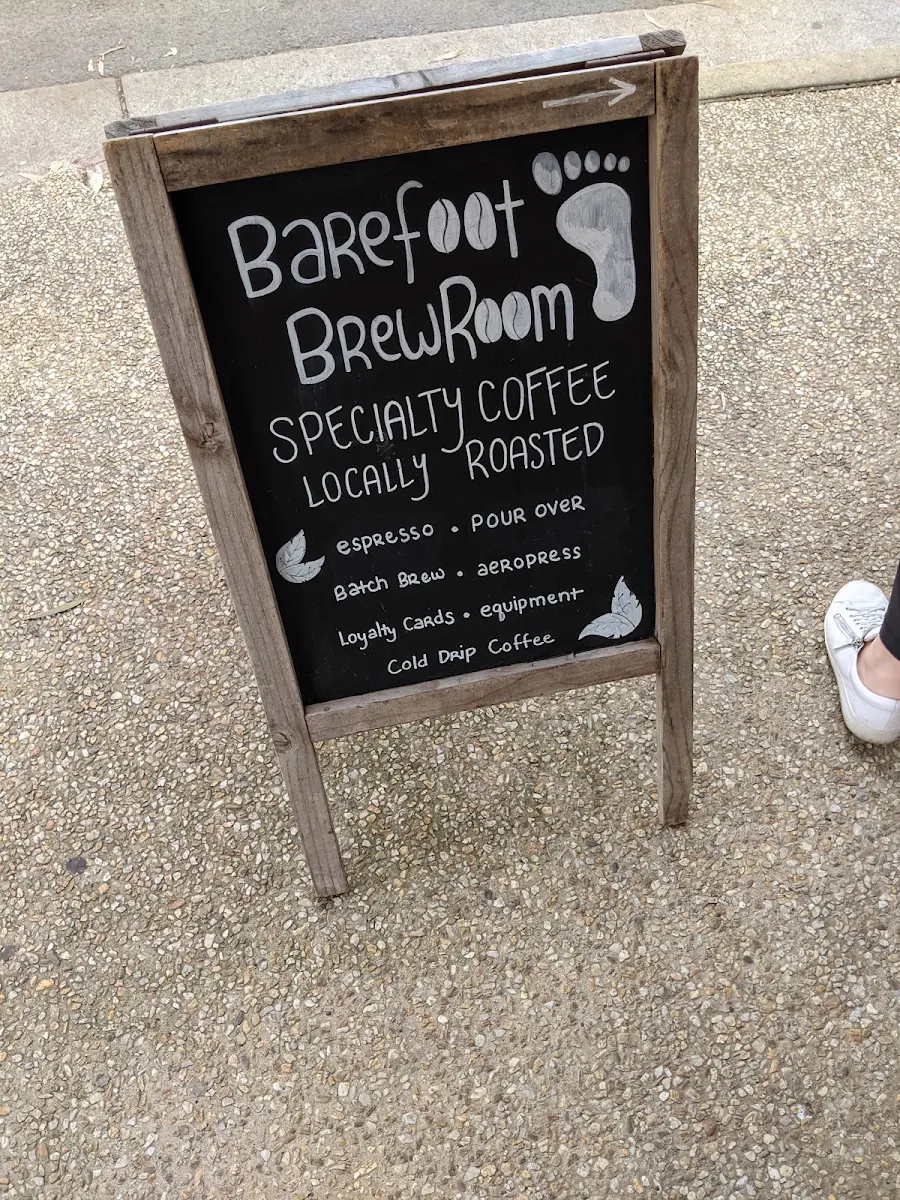 Barefoot
BrewRoom
SPECIALTY COFFEE
LOCALLY ROASTED
espresso • POUR OVER
Batch Brew • aeropress
Loyalty Cards • equipment
Cold Drip Coffee